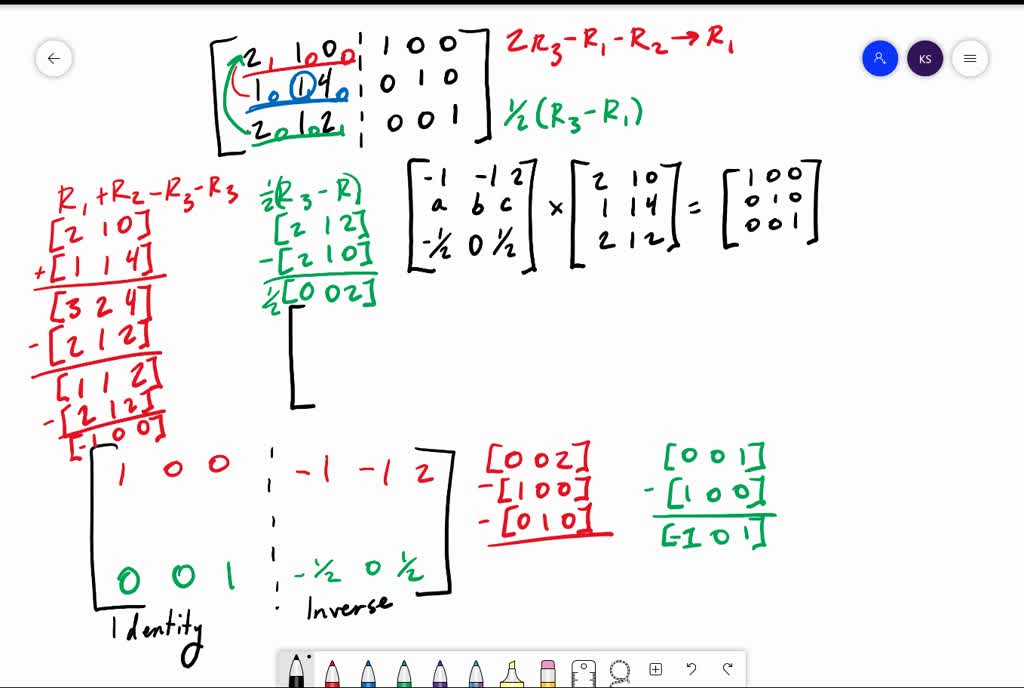 2 1 0 0 1 0 0
1 1 4 0 1 0
2 1 2 0 0 1
2R3-R1-R2→R1
½(R3-R1)
R1+R2-R3-R3
[2 1 0]
+[1 1 4]
[3 2 4]
-[2 1 2]
[1 1 2]
-[2 1 2]
[-1 0 0]
½(R3-R)
[2 1 2]
-[2 1 0]
½[0 0 2]
-1 -1 2 2 1 0 1 0 0
a b c × 1 1 4 = 0 1 0
-½ 0 ½ 2 1 2 0 0 1
1 0 0 -1 -1 2
0 0 1 -½ 0 ½
Identity Inverse
[0 0 2]
-[1 0 0]
-[0 1 0]
[0 0 1]
-[1 0 0]
[-1 0 1]
KS